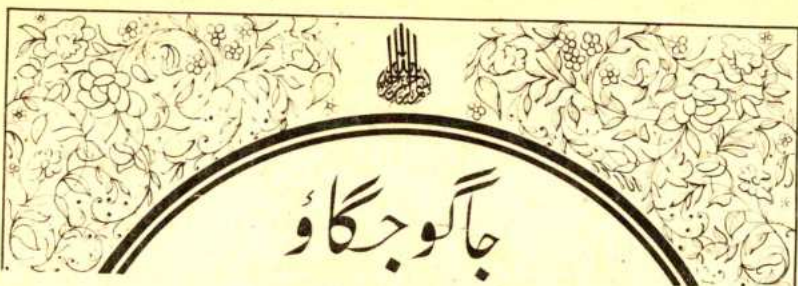 بسم اللہ الرحمن الرحیم
جاگو جگاؤ